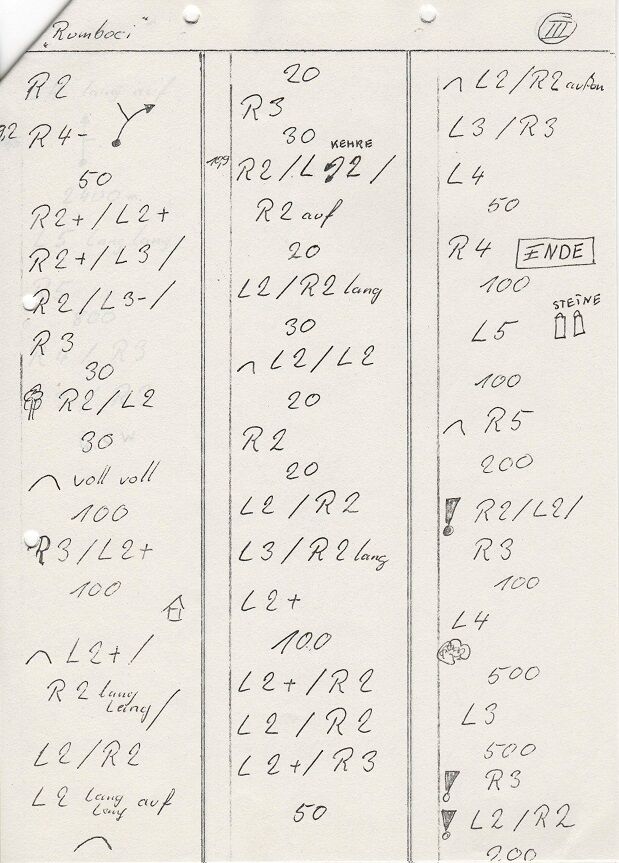 "Rombaci"
III
R2
R4-
50
R2+/L2+
R2+/L3/
R2/L3-/
R3
30
R2/L2
30
voll voll
100
R3/L2+
100
L2+/
R2 lang
lang/
L2/R2
L2 lang auf
lang
20
R3
30
KEHRE
199 R2/L2/
R2 auf
20
L2/R2 lang
30
L2/L2
20
R2
20
L2/R2
L3/R2 lang
L2+
100
L2+/R2
L2/R2
L2+/R3
50
L2/R2 außen
L3/R3
L4
50
R4 ENDE
100
STEINE
L5
100
R5
200
! R2/L2/
R3
100
L4
500
L3
500
! R3
! L2/R2
200